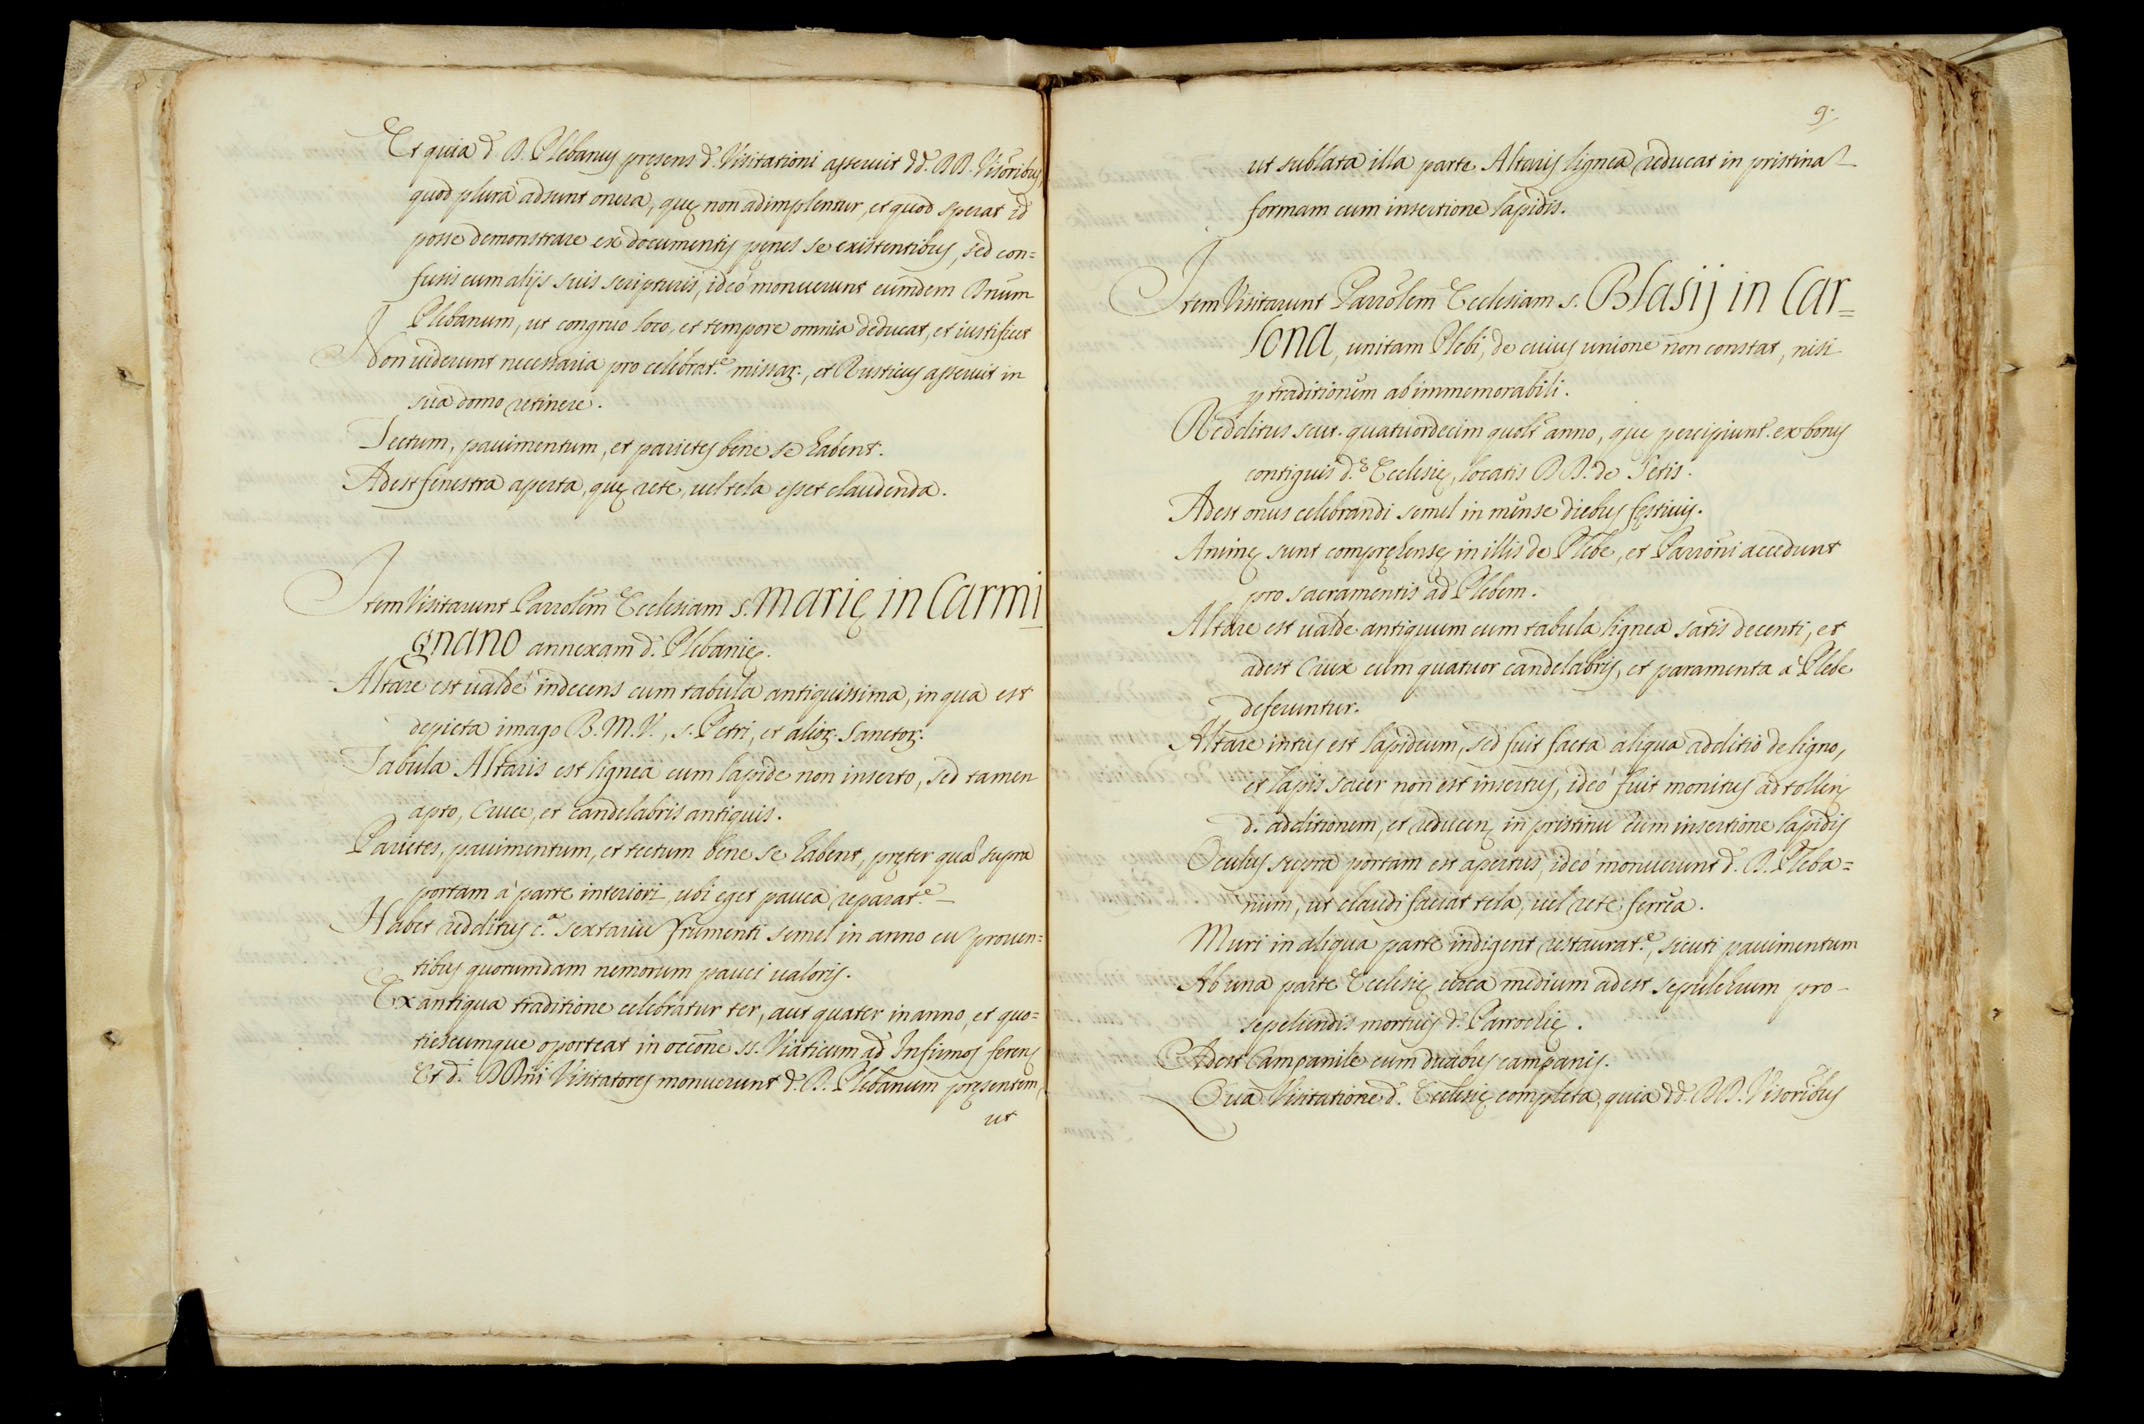 Et quia d. D. Plebanus pręsens d. Visitationi asseruit dd. DD. Visoribus,
quod plura adsunt onera, quę non adimplentur, et quod sperat id
posse demonstrare ex documentis penes se existentibus, sed con=
fusis cum alijs suis scripturis, ideò monuerunt eumdem Dnum
Plebanum, ut congruo loco, et tempore omnia deducat, et iustificet
Non uiderunt necessaria pro celebrat.e missar., et Rusticus asseruit in
sua domo retinere.
Tectum, pauimentum, et parietes bene se habent.
Adest finestra aperta, quę rete, uel tela esset claudenda.
Item Visitarunt Parrolem Ecclesiam s. Marię in Carmi
gnano annexam d. Plebanię.
Altare est ualdè indecens cum tabula antiquissima, in qua est
depicta imago B.M.V., s. Petri, et alior. Sanctor.
Tabula Altaris est lignea cum lapide non inserto, sed tamen
apto, Cruce, et candelabris antiquis.
Parietes, pauimentum, et tectum bene se habent, pręter quà supra
portam à parte interiori, ubi eget pauca reparat.e
Habet redditus c.a sextariu frumenti semel in anno eu prouen=
tibus quorumdam nemorum pauci ualoris.
Ex antiqua traditione celebratur ter, aut quater in anno, et quo=
tiescumque oporteat in occõne ss. Viaticum ad Infirmos ferenz
Et d. DDni Visitatores monuerunt d. D. Plebanum pręsentem,
ut
9.
ut sublata illa parte Altaris lignea reducat in pristina
formam cum insertione lapidis.
Item Visitarunt Parrolem Ecclesiam s. Blasij in Car=
sona, unitam Plebi, de cuius unione non constat, nisi
p traditionem ab immemorabili.
Redditus scut. quatuordecim quolt anno, que percipiunt. ex bonis
contiguis d.ę Ecclesię, locatis DD. de Setis.
Adest onus celebrandi semel in mense diebus festiuis.
Animę sunt compręhensę in illis de Plebe, et Parroni accedunt
pro sacramentis ad Plebem.
Altare est ualde antiquum cum tabula lignea satis decenti, et
adest Crux cum quatuor candelabris, et paramenta a Plebe
deferuntur.
Altare intus est lapideum, sed fuit facta aliqua additio de ligno,
et lapis sacer non est insertus, ideò fuit monitus ad tollenz
d. additionem, et reducenz in pristinu cum insertione lapidis
Oculus supra portam est apertus, ideò monuerunt d. D. Pleba=
num, ut claudi faciat tela, uel rete ferrea.
Muri in aliqua parte indigent restaurat.e, sicuti pauimentum
Ab una parte Ecclesię circa medium adest sepulchrum pro
sepeliendis mortuis d. Parrochię.
Adest Campanile cum duabus campanis.
Qua Visitatione d. Ecclesię completa, quia dd. DD. Visoribus